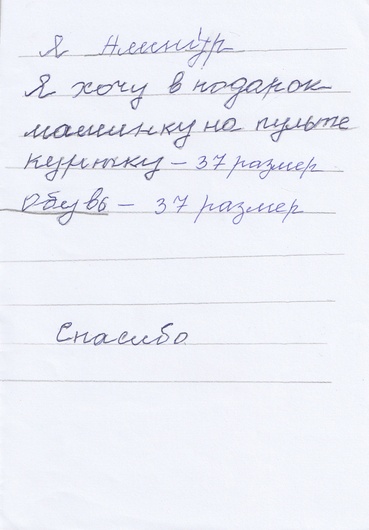 Я Алинур
Я хочу в подарок
машинку на пульте
куртку – 37 размер
Обувь – 37 размер
Спасибо